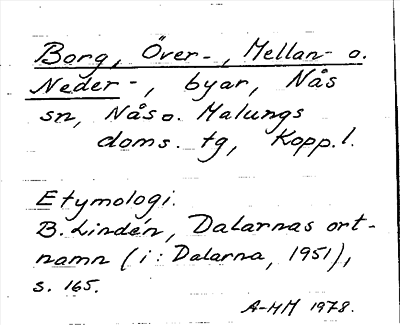 Borg, Över-, Mellan- o.
Neder-, byar, Nås
sn, Nås o. Malungs
doms. tg, Kopp.l.
Etymologi.
B. Lindén, Dalarnas ort-
namn (i: Dalarna, 1951),
s. 165.
A-HM 1978.